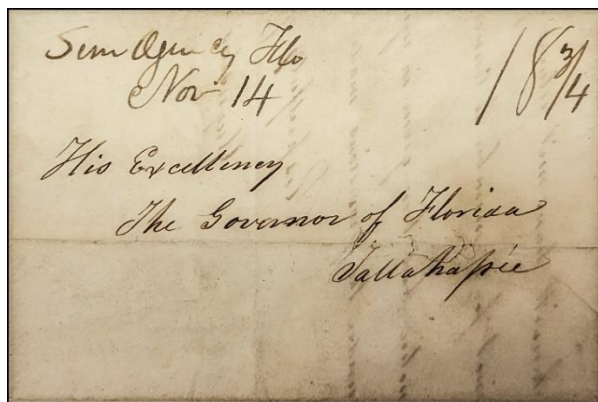 Sem Agency Flo
Nov 14
18 3/4
His Excellency
The Governor of Florida
Tallahassee